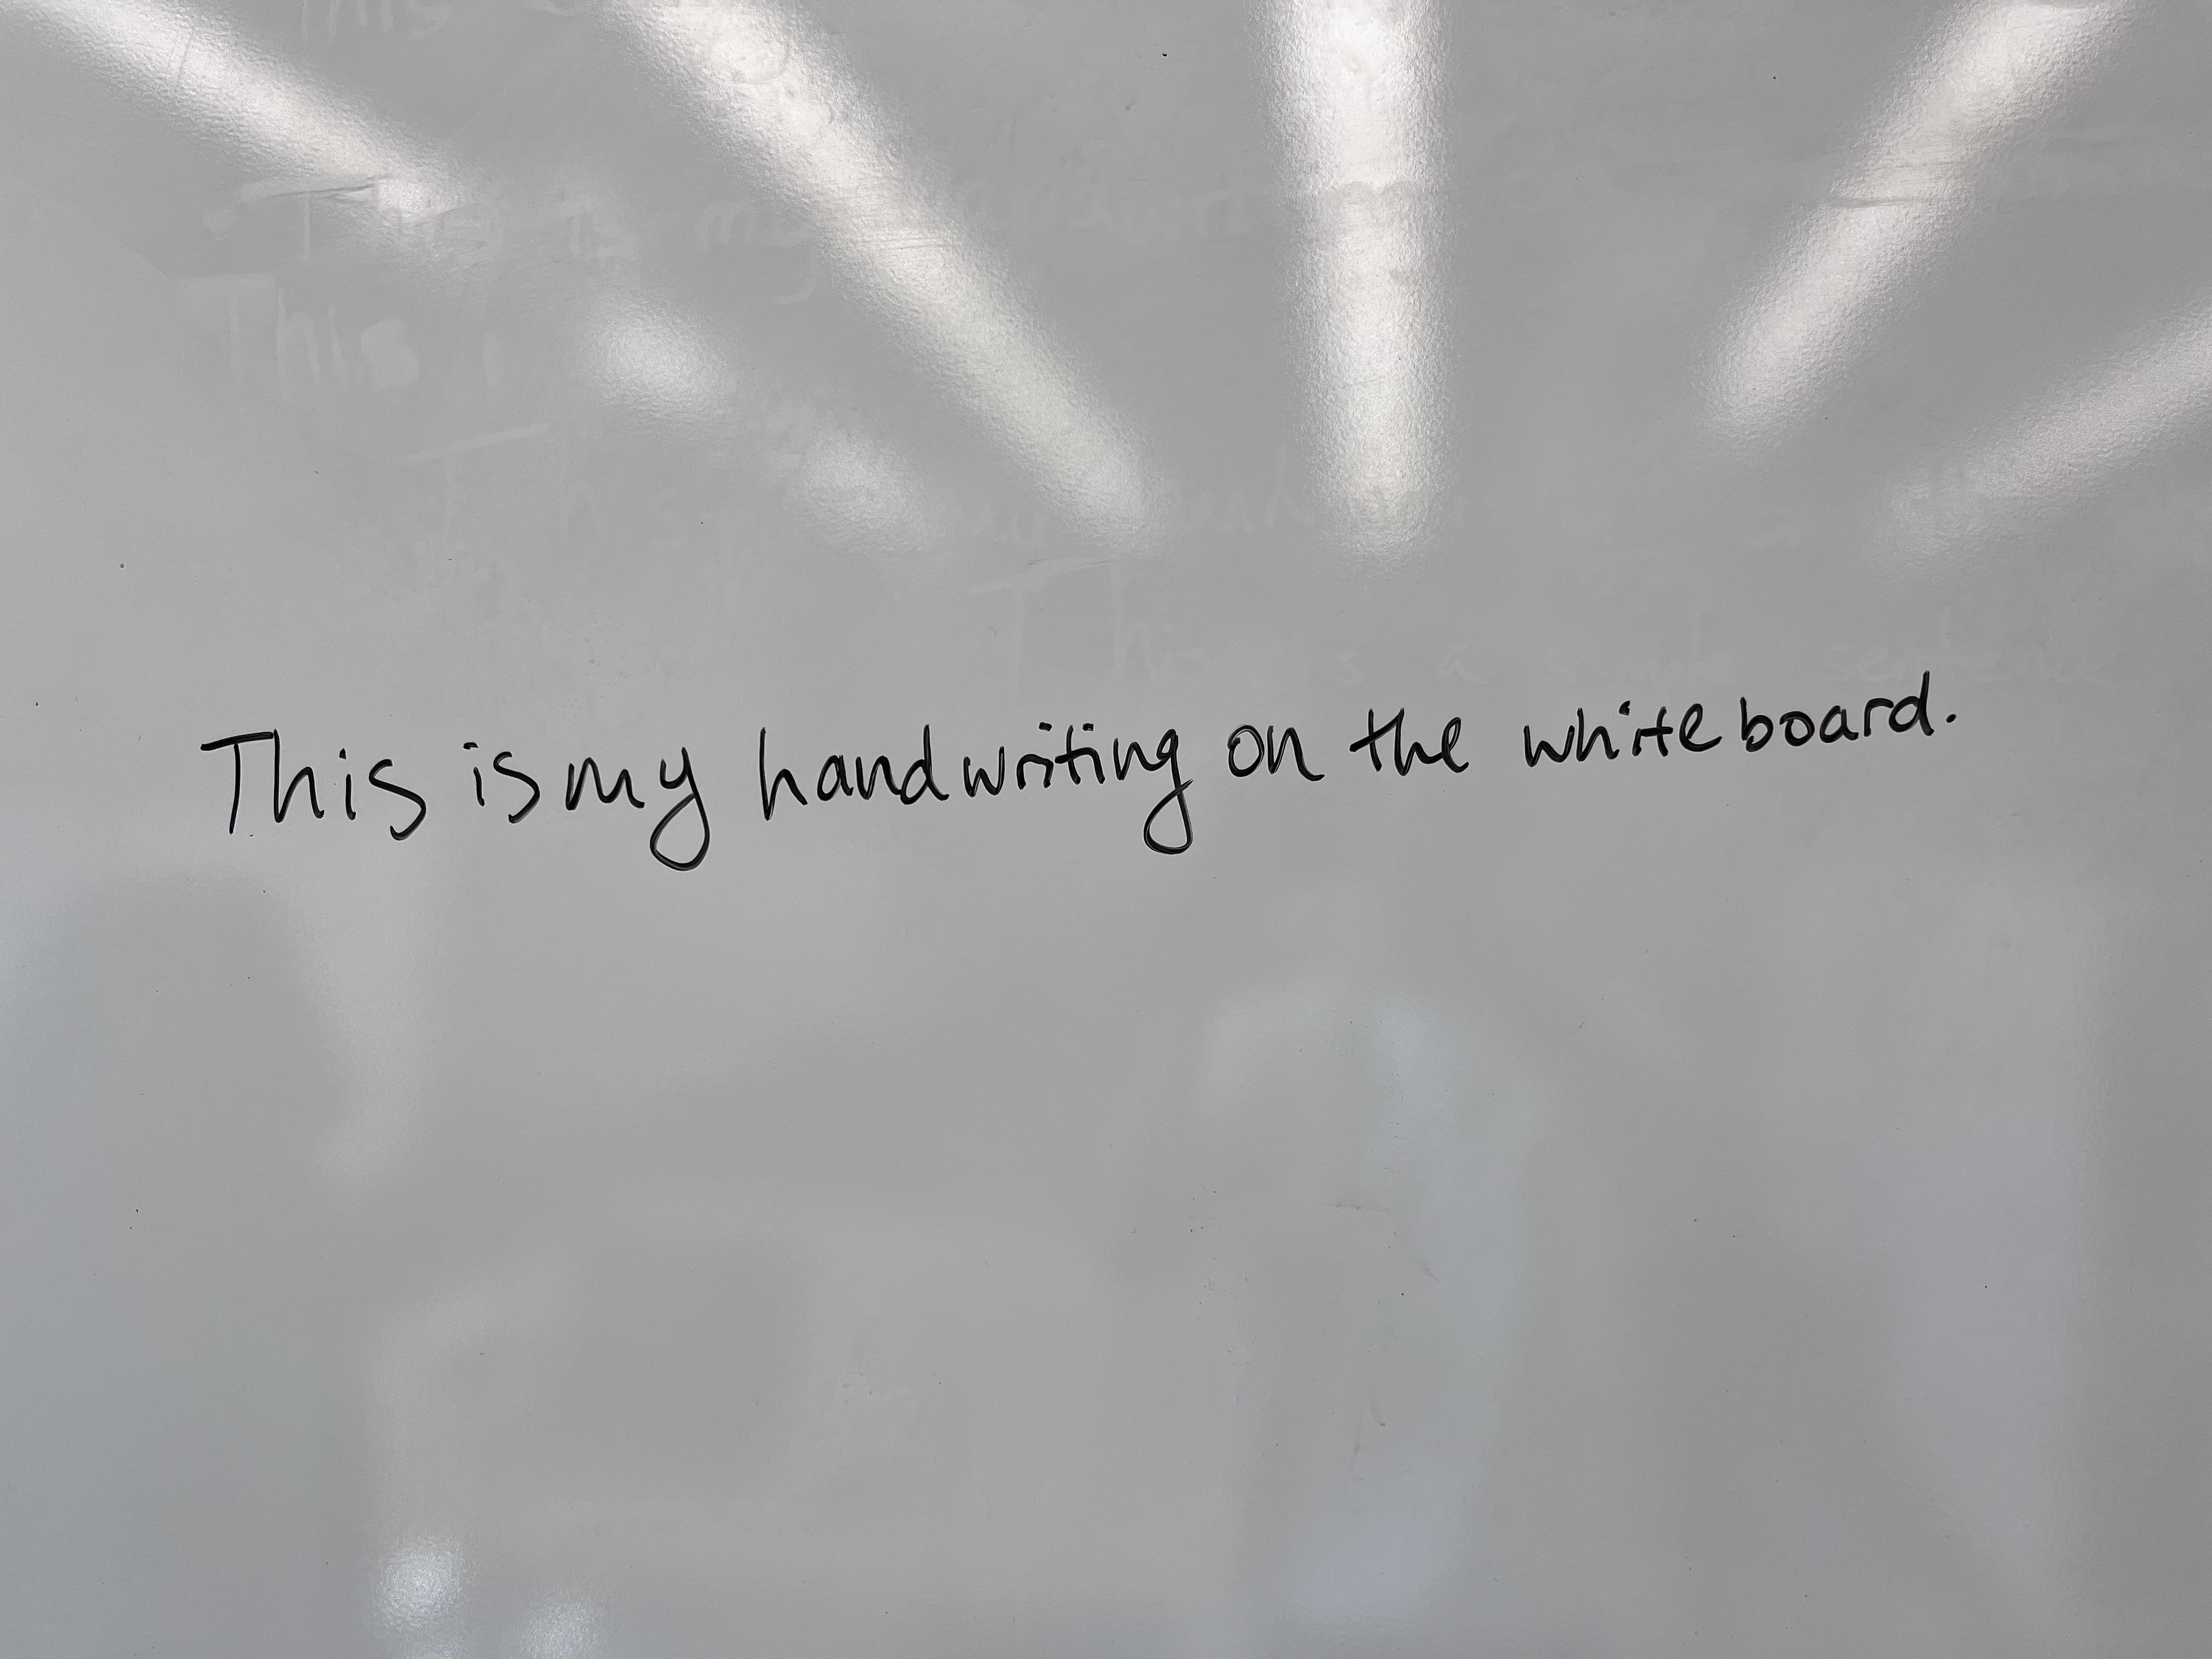 This is my handwriting on the whiteboard.